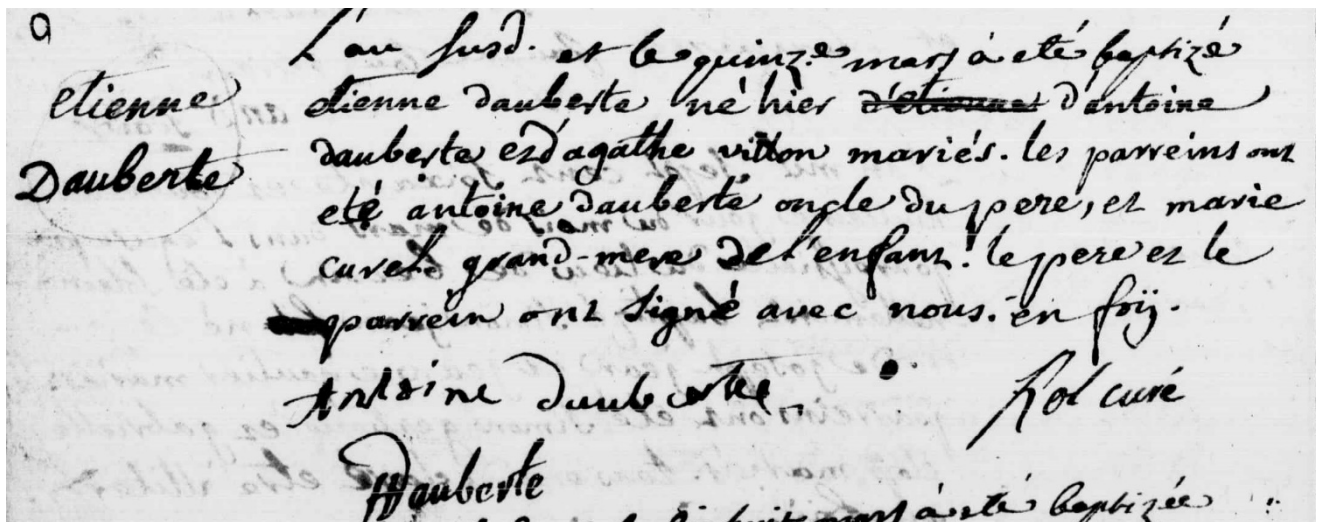 etienne
Dauberte
L'an susd. et le quinze mars à eté baptizé
etienne dauberte né hier d'etienne d'antoine
dauberte et d'agathe vitton mariés. les parreins ont
eté antoine dauberte oncle du pere, et marie
curet grand-mere de l'enfant. le pere et le
parrein ont signé avec nous. en foÿ.
Antoine Dauberte
Rol curé
Dauberte
mars à eté baptizée